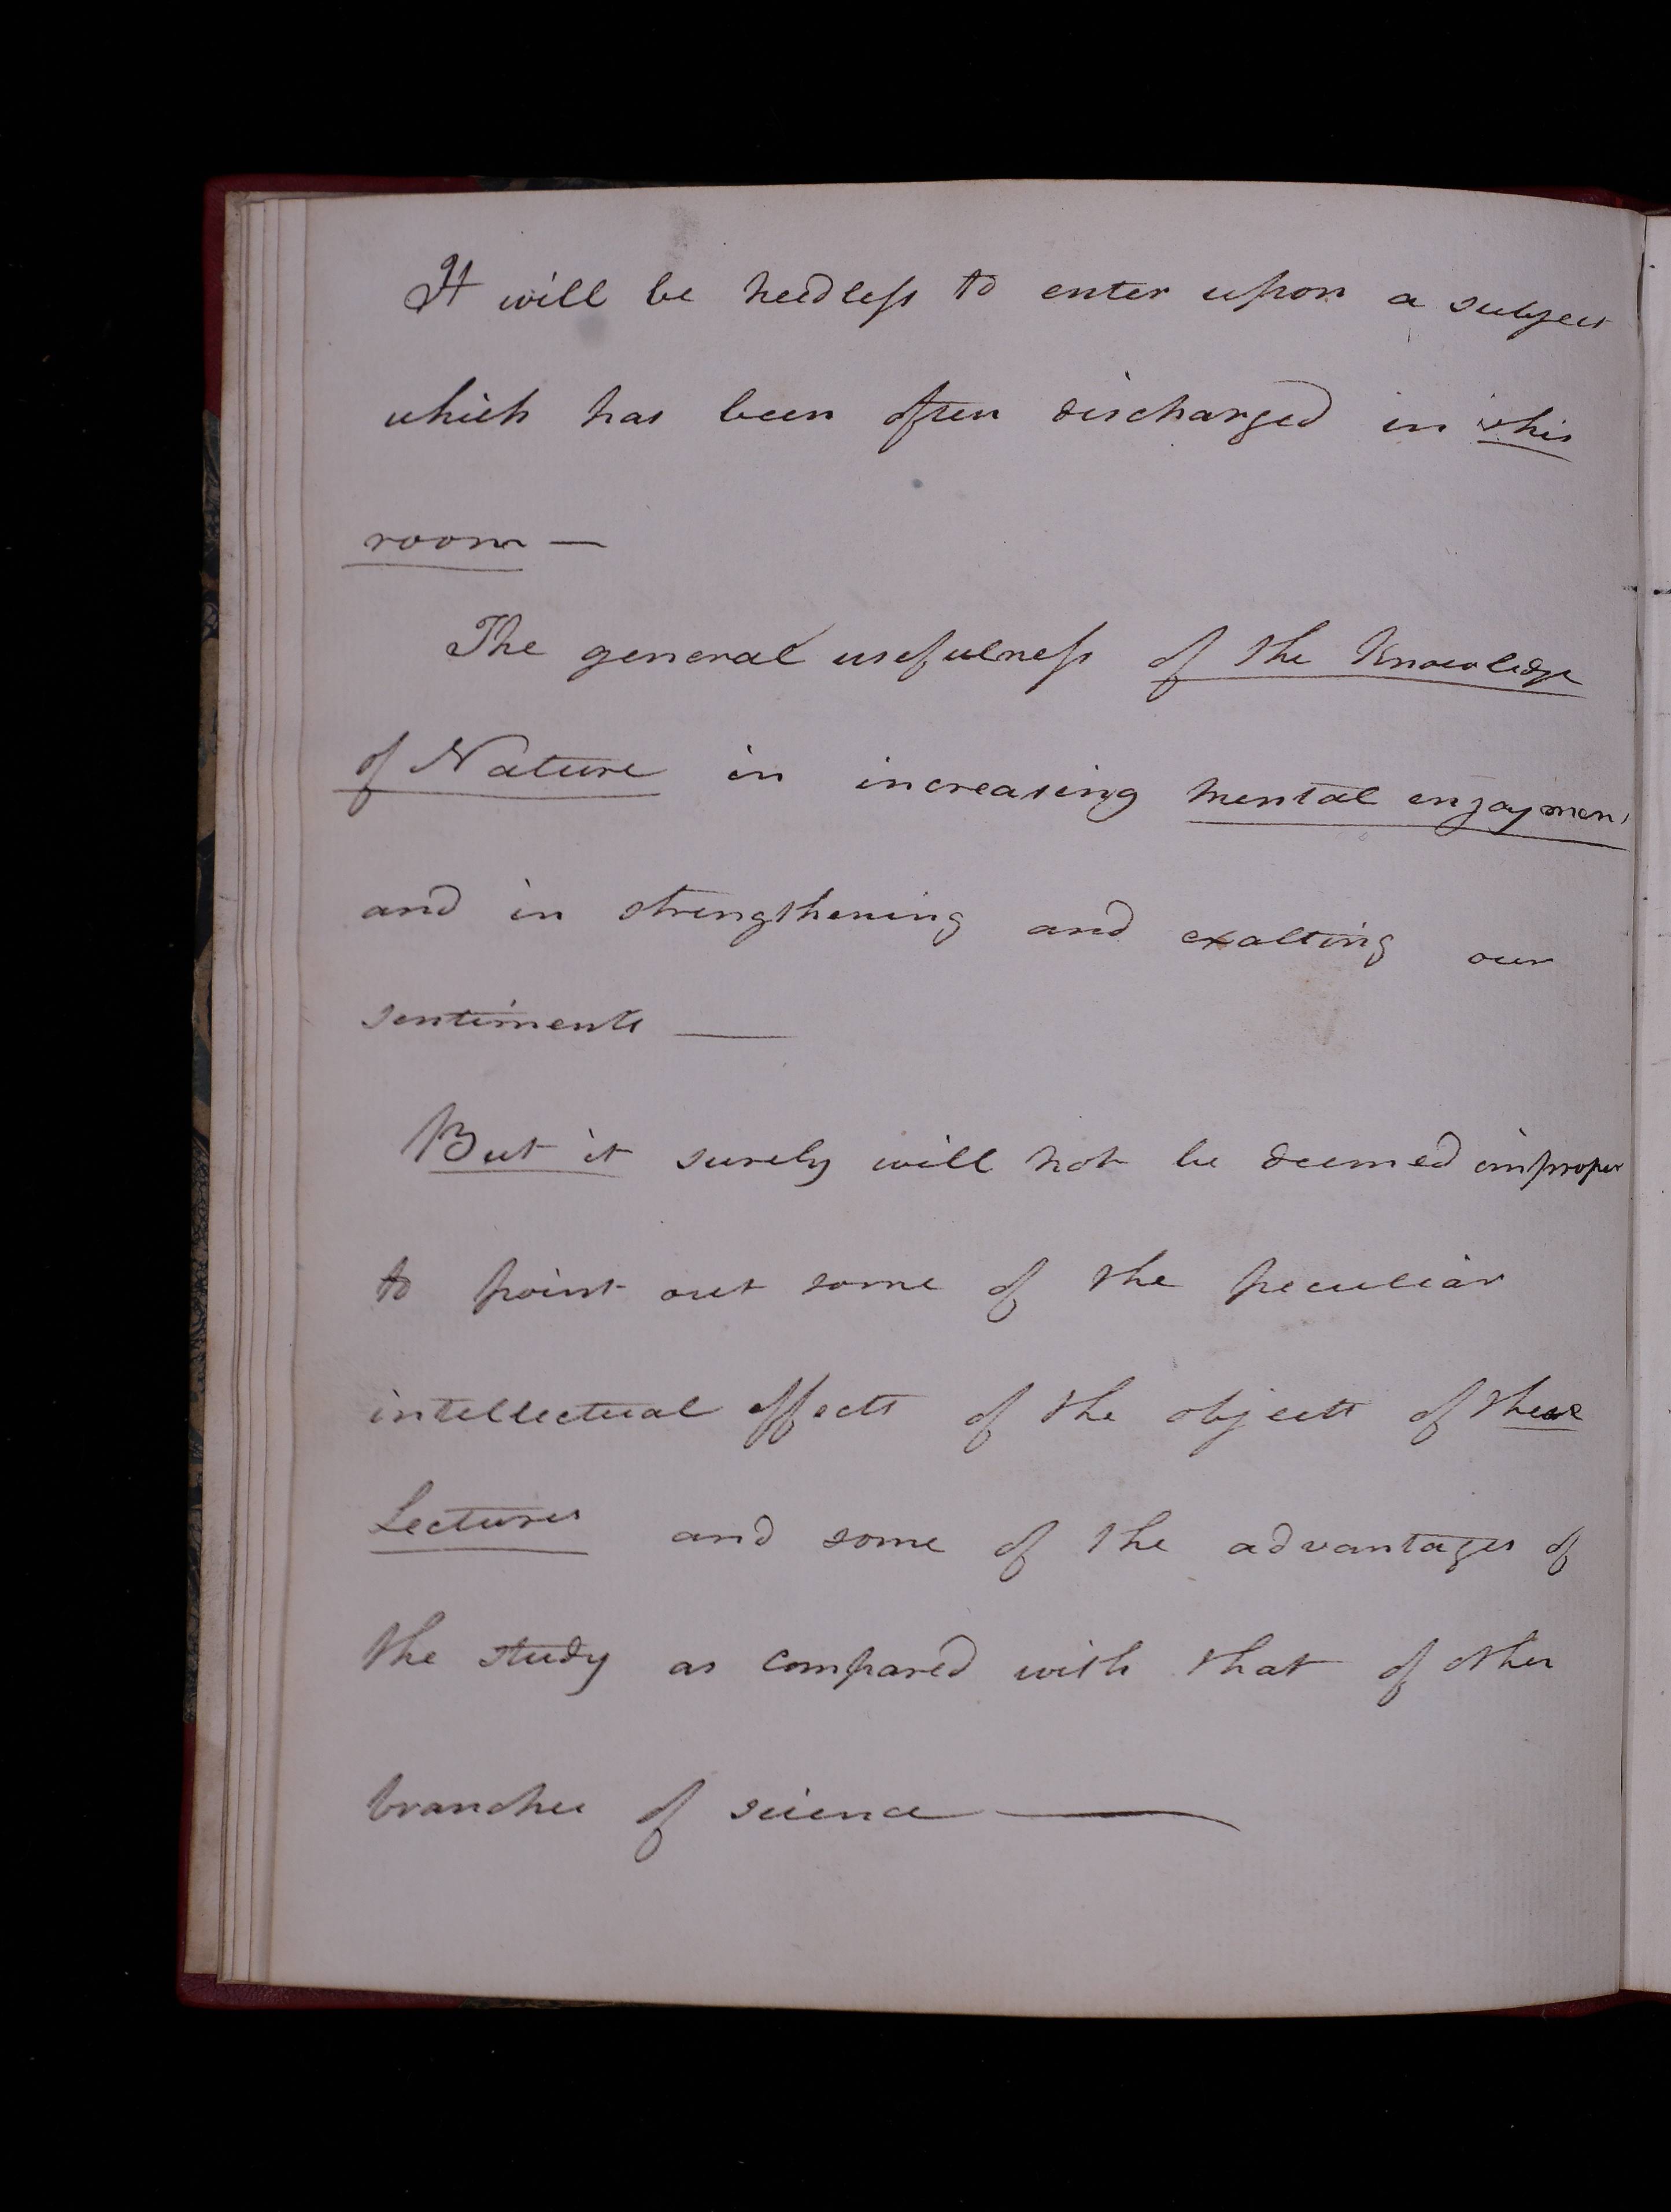 It will be needless to enter upon a subject
which has been often discharged in this
room —
The general usefulness of the Knowledge
of Nature in increasing mental enjoyment
and in strengthening and exalting our
sentiments —
But it surely will not be deemed improper
to point out some of the peculiar
intellectual effects of the objects of these
Lectures and some of the advantages of
the study as compared with that of other
branches of science —